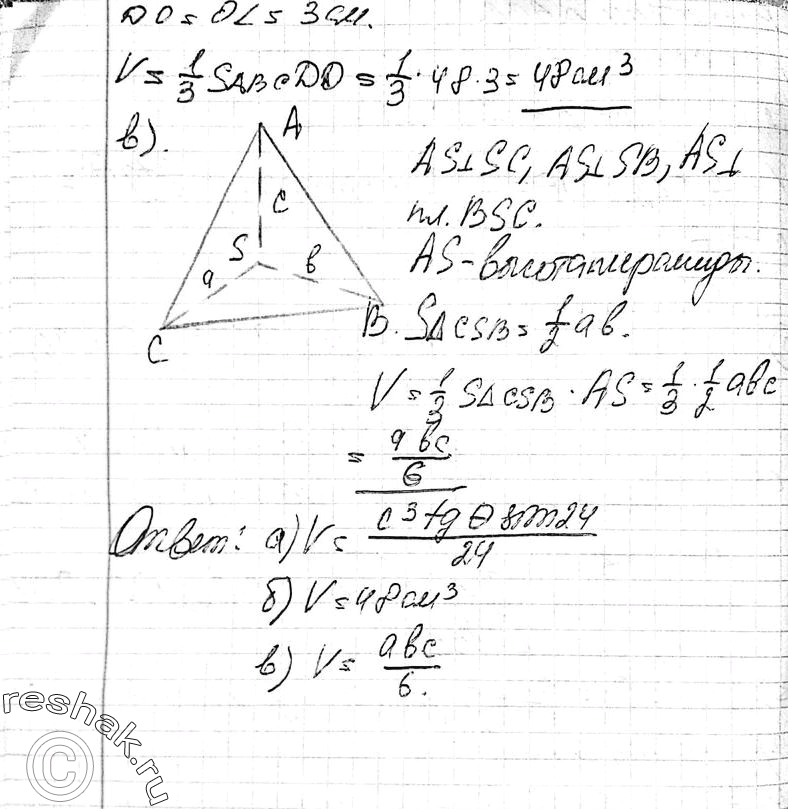 DO = OL = 3 см.
V = 1/3 SABC DO = 1/3 · 48 · 3 = 48 см³
в).
A
AS⊥SC, AS⊥SB, AS⊥
c
пл. BSC.
S
a
b
AS - высота пирамиды.
C
B.
S△CSB = 1/2 ab.
V = 1/3 S△CSB · AS = 1/3 · 1/2 abc
= abc/6
Ответ: а) V = c³ tg θ sin 24/24
б) V = 48 см³
в) V = abc/6.
reshak.ru
©